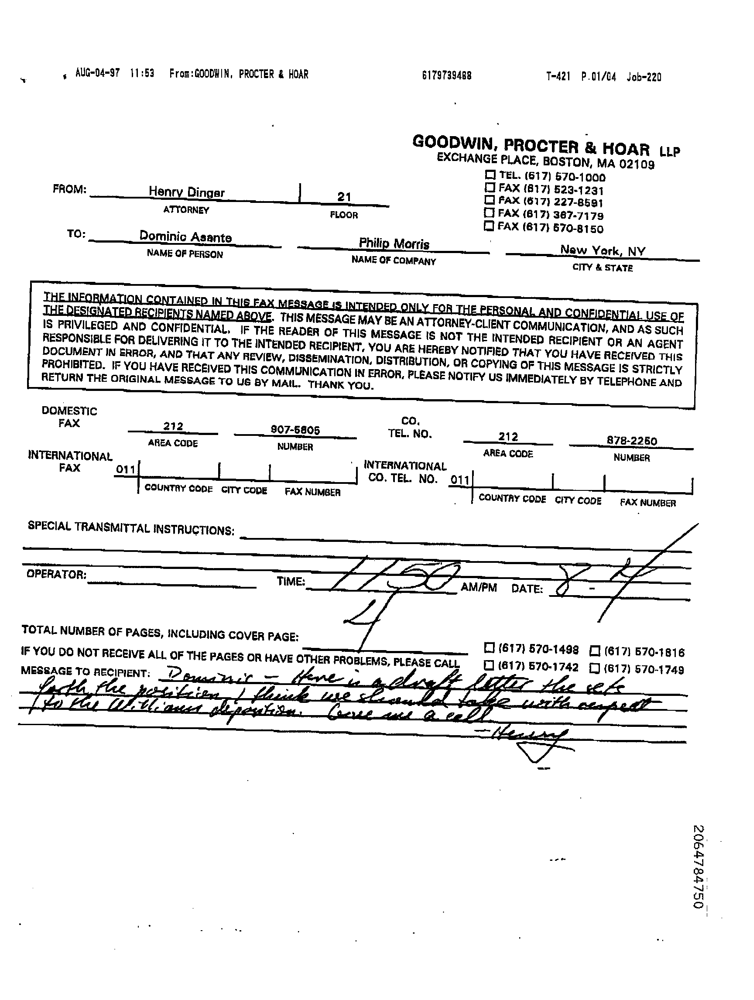 AUG-04-97 11:53 From:GOODWIN, PROCTER & HOAR 6179739488 T-421 P.01/04 Job-220
GOODWIN, PROCTER & HOAR LLP
EXCHANGE PLACE, BOSTON, MA 02109
☐ TEL. (617) 570-1000
☐ FAX (617) 523-1231
☐ FAX (617) 227-8591
☐ FAX (617) 367-7179
☐ FAX (617) 570-8150
FROM: Henry Dinger 21
ATTORNEY FLOOR
TO: Dominic Asante Philip Morris New York, NY
NAME OF PERSON NAME OF COMPANY CITY & STATE
THE INFORMATION CONTAINED IN THIS FAX MESSAGE IS INTENDED ONLY FOR THE PERSONAL AND CONFIDENTIAL USE OF
THE DESIGNATED RECIPIENTS NAMED ABOVE. THIS MESSAGE MAY BE AN ATTORNEY-CLIENT COMMUNICATION, AND AS SUCH
IS PRIVILEGED AND CONFIDENTIAL. IF THE READER OF THIS MESSAGE IS NOT THE INTENDED RECIPIENT OR AN AGENT
RESPONSIBLE FOR DELIVERING IT TO THE INTENDED RECIPIENT, YOU ARE HEREBY NOTIFIED THAT YOU HAVE RECEIVED THIS
DOCUMENT IN ERROR, AND THAT ANY REVIEW, DISSEMINATION, DISTRIBUTION, OR COPYING OF THIS MESSAGE IS STRICTLY
PROHIBITED. IF YOU HAVE RECEIVED THIS COMMUNICATION IN ERROR, PLEASE NOTIFY US IMMEDIATELY BY TELEPHONE AND
RETURN THE ORIGINAL MESSAGE TO US BY MAIL. THANK YOU.
DOMESTIC
FAX 212 907-5805 CO.
TEL. NO. 212 878-2250
AREA CODE NUMBER AREA CODE NUMBER
INTERNATIONAL
FAX 011 INTERNATIONAL
CO. TEL. NO. 011
COUNTRY CODE CITY CODE FAX NUMBER COUNTRY CODE CITY CODE FAX NUMBER
SPECIAL TRANSMITTAL INSTRUCTIONS:
OPERATOR: TIME: 1150 AM/PM DATE: 8-4
TOTAL NUMBER OF PAGES, INCLUDING COVER PAGE: 4
IF YOU DO NOT RECEIVE ALL OF THE PAGES OR HAVE OTHER PROBLEMS, PLEASE CALL ☐ (617) 570-1498 ☐ (617) 570-1816
☐ (617) 570-1742 ☐ (617) 570-1749
MESSAGE TO RECIPIENT: Dominic - Here is a draft letter the sets
forth the position I think we should take with respect
to the Williams deposition. Give me a call
- Henry
2064784750